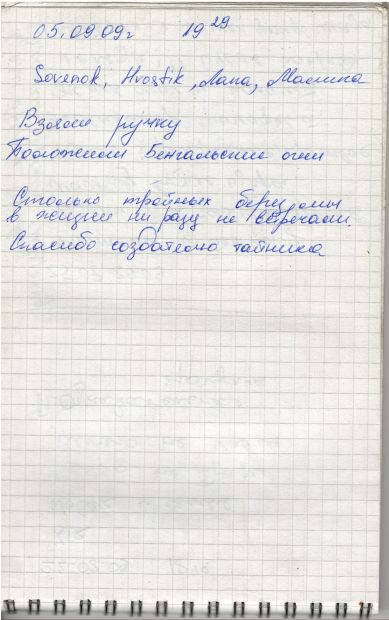 05.09.09г 19 29
Sovenok, Hvostik, Лапа, Малинка
Взяли ручку
Положили Бенгальские огни
Столько тройных берёз мы
в жизни ни разу не встречали.
Спасибо создателю тайника